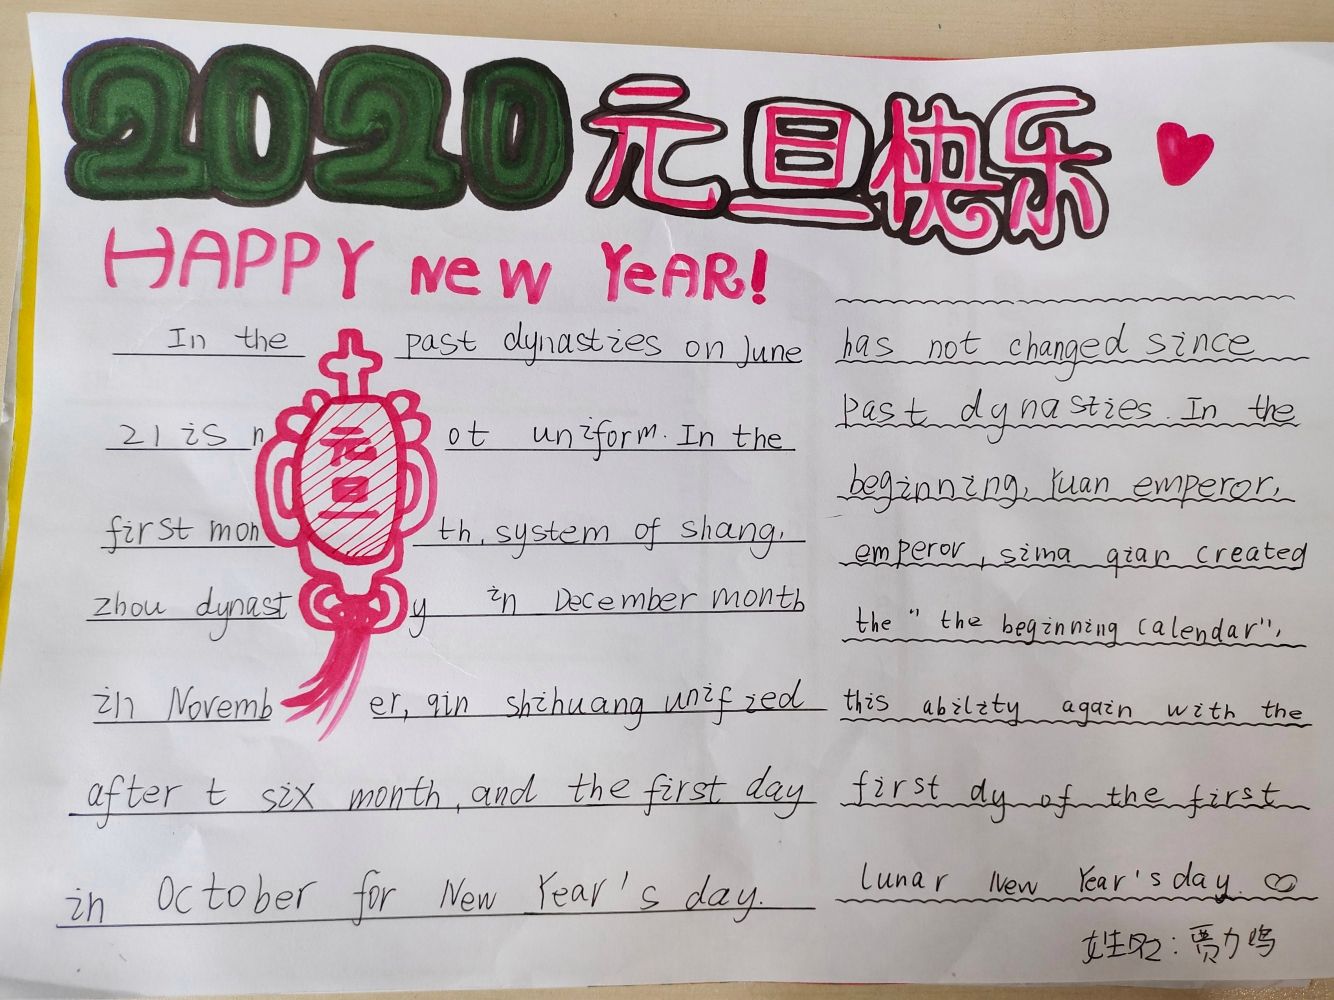 2020元旦快乐
HAPPY New YeAR!
In the past dynasties on June
21 is not uniform. In the
first month, system of shang,
zhou dynasty in December month
in November, qin shihuang unified
after t six month, and the first day
in October for New Year's day.
has not changed since
past dynasties. In the
beginning, Yuan emperor,
emperor, sima qian created
the " the beginning calendar",
this ability again with the
first dy of the first
lunar New Year's day.
元旦
姓名:贾力鸣